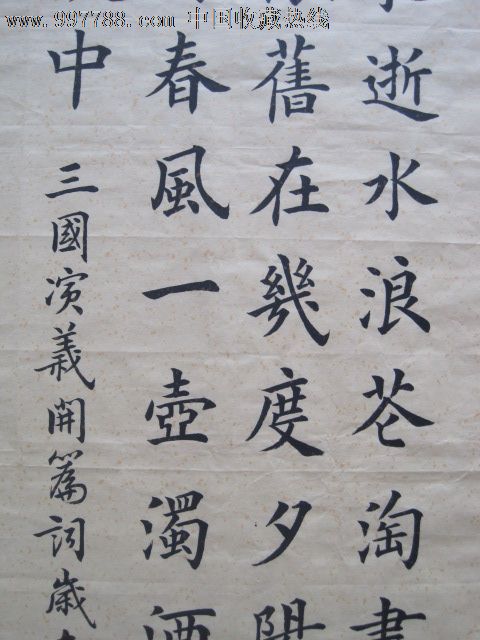 www.997788.com 中国收藏热线
逝水浪花淘盡
舊在幾度夕陽
春風一壺濁酒
中
三國演義開篇詞歲